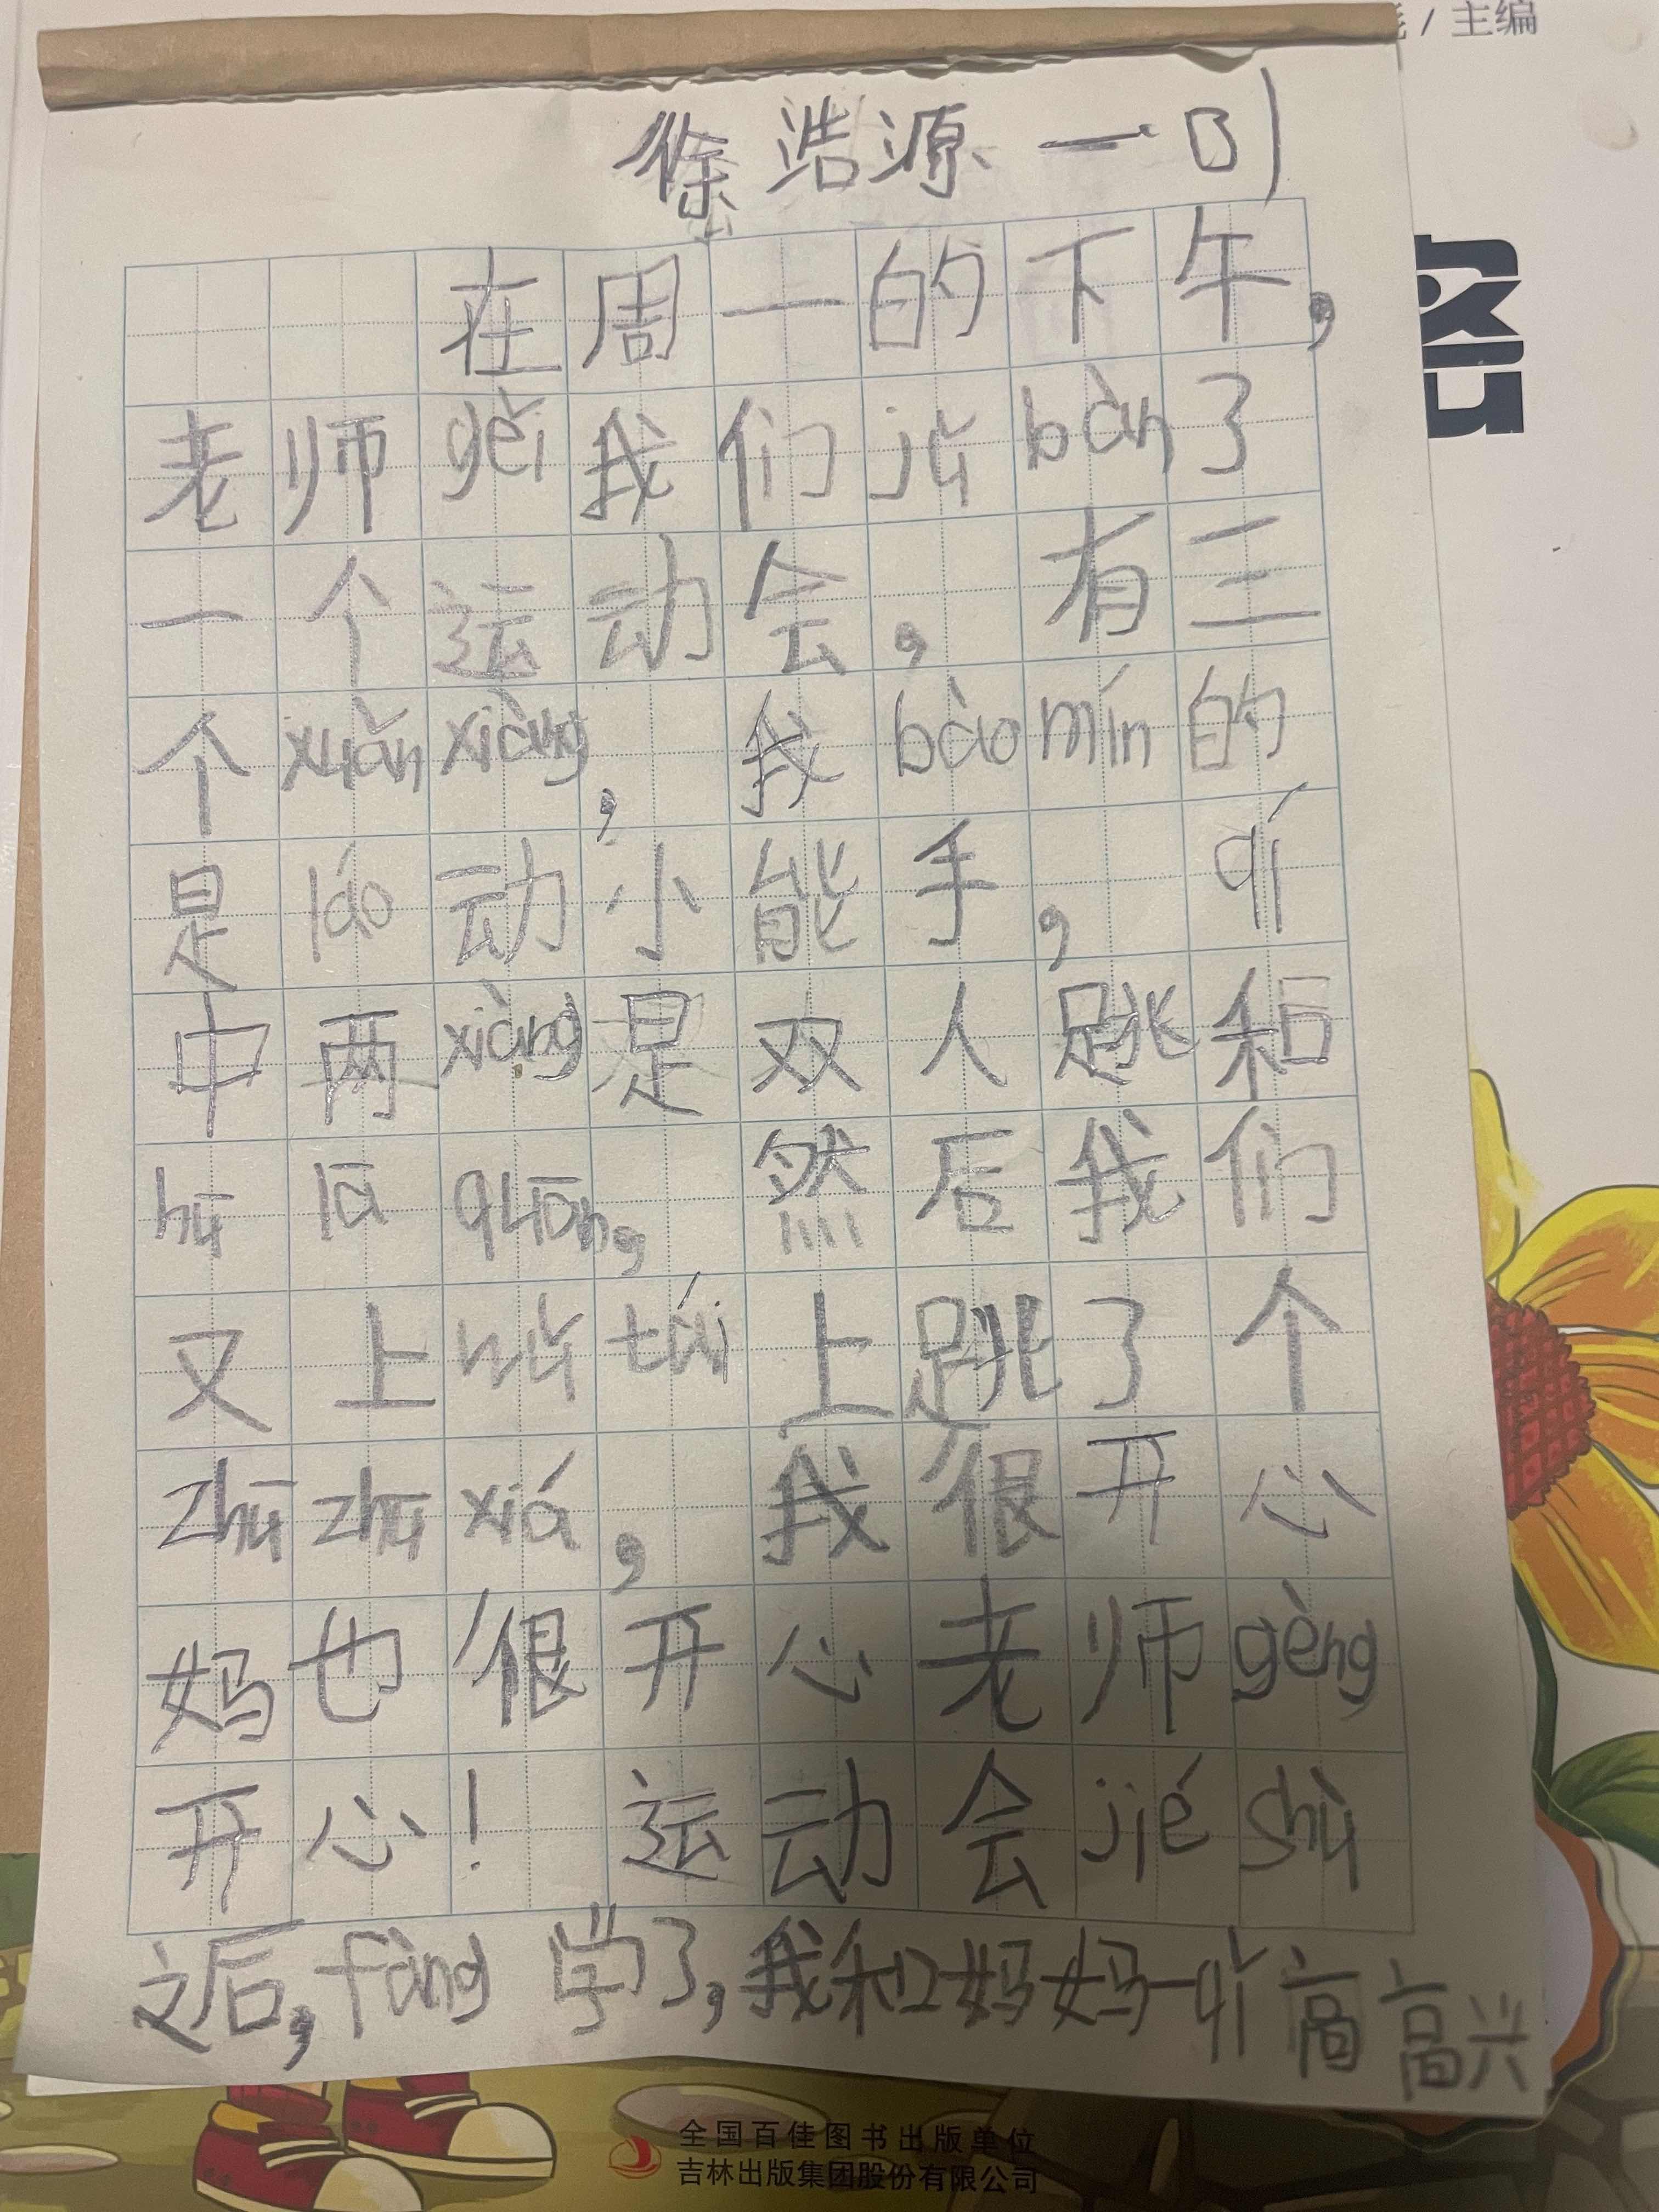 / 主编
徐浩源 一(3)
在周一的下午，
老师gěi我们jǔ bàn了
一个运动会，有三
个xuǎn xiàng，我bào mín的
是láo动小能手，qí
中两xiàng是双人跳和
hū lā quān，然后我们
又上wǔ tái上跳了个
zhū zhū xiá，我很开心
妈也很开心老师gèng
开心！运动会jié shù
之后，fàng学了，我和妈妈一qǐ高高兴
全国百佳图书出版单位
吉林出版集团股份有限公司